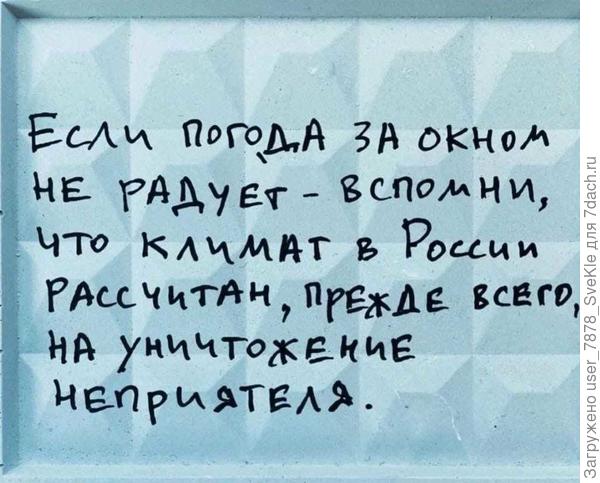 Если погода за окном
не радует – вспомни,
что климат в России
рассчитан, прежде всего,
на уничтожение
неприятеля.
Загружено user_7878_SveKle для 7dach.ru